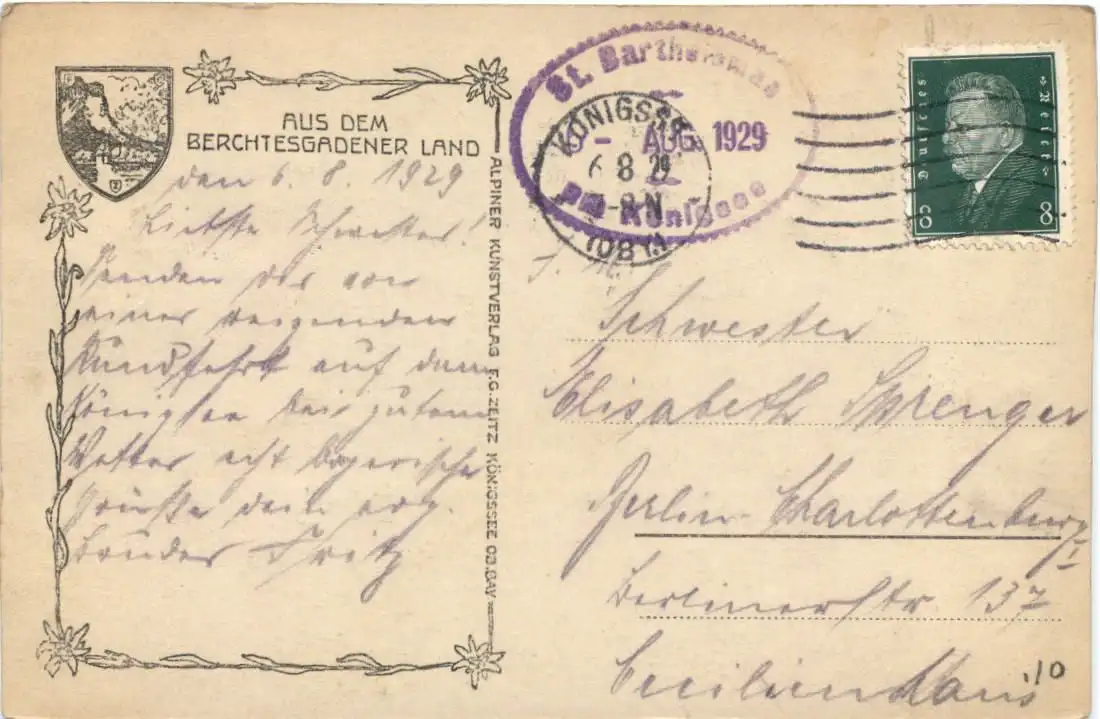 AUS DEM
BERCHTESGADENER LAND
den 6. 8. 1929
Liebste Schwester!
Senden dir von
einer reizenden
Rundfahrt auf dem
Königsee bei gutem
Wetter echt bayerische
Grüße dein
Bruder Fritz
ALPINER KUNSTVERLAG F.G. ZEITZ KÖNIGSSEE OB. BAY
St. Bartholomae
AUG. 1929
Königssee
KÖNIGSSEE
6 8 29
Deutsches Reich
8 8
Schwester
Elisabeth Sprenger
Berlin-Charlottenburg
Berlinerstr. 137
Cecilienhaus
.10